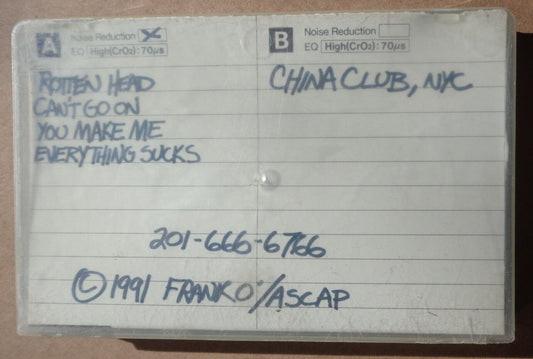 A Noise Reduction
EQ High(CrO2): 70μs
B Noise Reduction
EQ High(CrO2): 70μs
ROTTEN HEAD
CAN'T GO ON
YOU MAKE ME
EVERYTHING SUCKS
CHINA CLUB, NYC
201-666-6766
©1991 FRANK O'/ASCAP